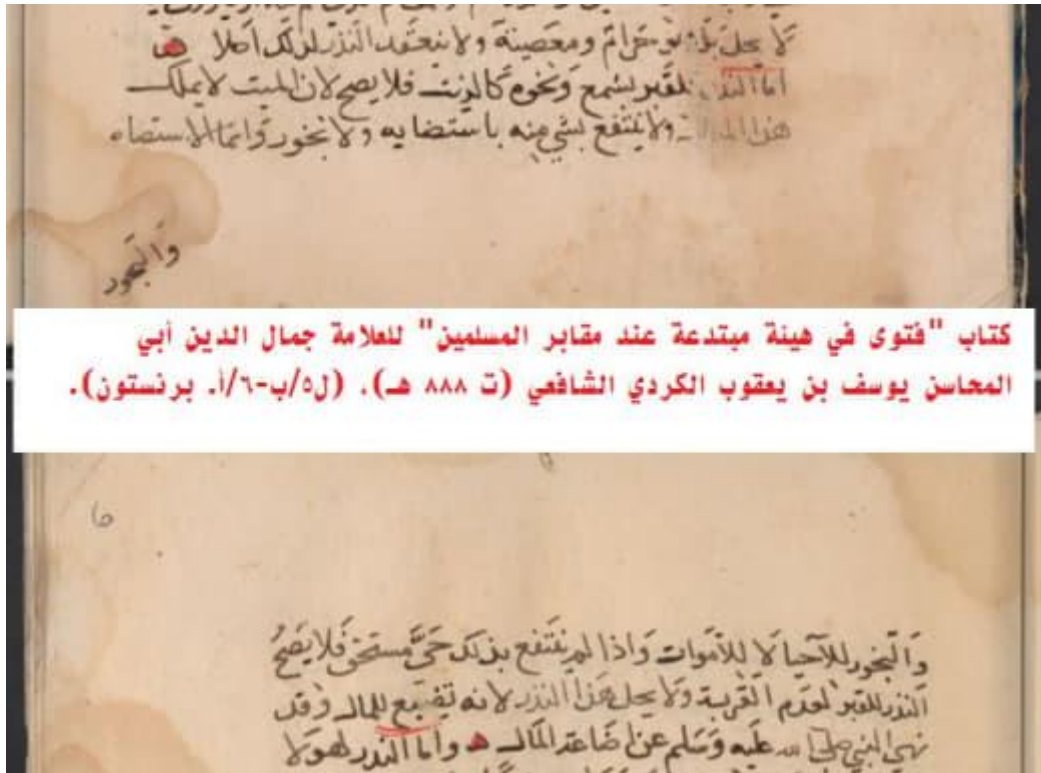 لا يحل بل هو حرام ومعصية ولا ينعقد النذر لذلك اصلا
اما النذر للقبر بشمع ونحوه كالزيت فلا يصح لان الميت لا يملك
هذا ولا ينتفع بشي منه باستضايه ولا بخور وانما الاستضاه
والبخور
كتاب "فتوى في هيئة مبتدعة عند مقابر المسلمين" للعلامة جمال الدين أبي
المحاسن يوسف بن يعقوب الكردي الشافعي (ت ٨٨٨ هـ). (ل٥/ب-٦/أ. برنستون).
٦
والبخور للاحيا لا للاموات واذا لم ينتفع بذلك حي مستحق فلا يصح
النذر للقبر لعدم القربة ولا يحل هذا النذر لانه تضييع للمال وقد
نهى النبي صلى الله عليه وسلم عن اضاعة المال واما النذر لهولا